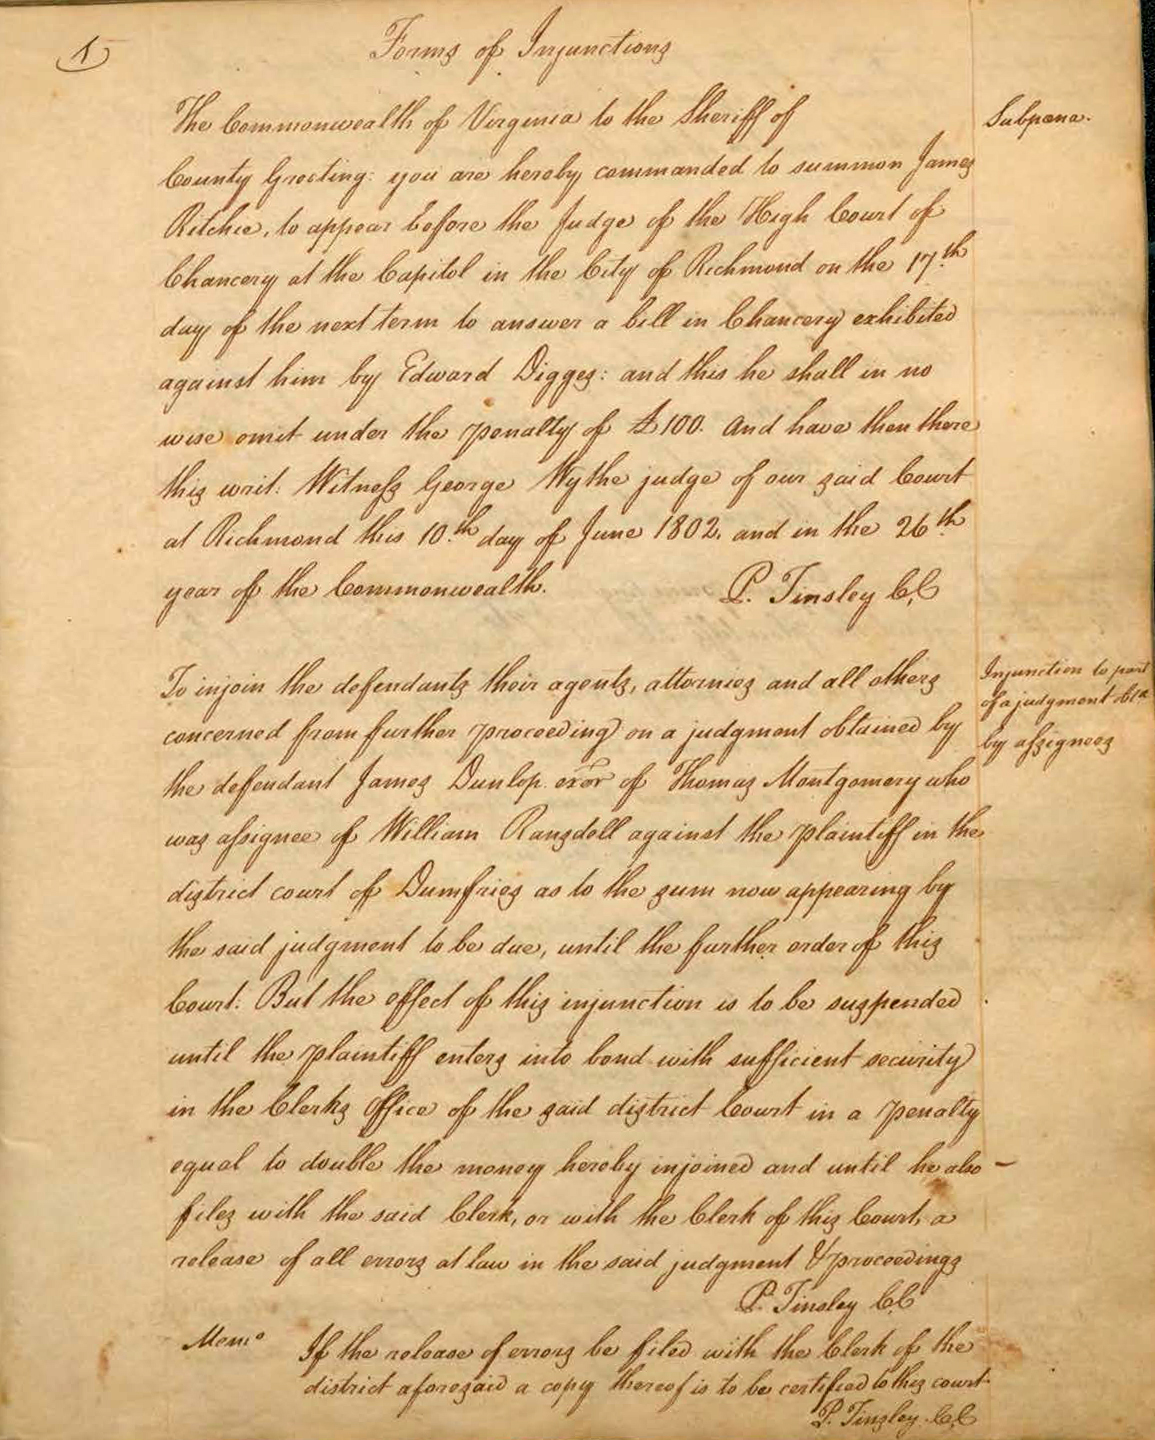 1
Forms of Injunctions
The Commonwealth of Virginia to the Sheriff of
Subpana.
County Greeting: you are hereby commanded to summon James
Ritchie, to appear before the Judge of the High Court of
Chancery at the Capitol in the City of Richmond on the 17.th
day of the next term to answer a bill in Chancery exhibited
against him by Edward Digges: and this he shall in no
wise omit under the penalty of £100. And have then there
this writ: Witness George Wythe judge of our said Court
at Richmond this 10.th day of June 1802. and in the 26.th
year of the Commonwealth.
P. Tinsley C.C
To injoin the defendants their agents, attornies and all others
concerned from further proceeding on a judgment obtained by
the defendant James Dunlop exor of Thomas Montgomery who
was assignee of William Ransdell against the plaintiff in the
district court of Dumfries as to the sum now appearing by
the said judgment to be due, until the further order of this
Court: But the effect of this injunction is to be suspended
until the plaintiff enters into bond with sufficient security
in the Clerks Office of the said district Court in a penalty
equal to double the money hereby injoined and until he also –
files with the said Clerk, or with the Clerk of this Court, a
release of all errors at law in the said judgment & proceedings
P. Tinsley C.C
Injunction to part
of a judgment obta
by assignees
Memo If the release of errors be filed with the Clerk of the
district aforesaid a copy thereof is to be certified to this court.
P. Tinsley C.C